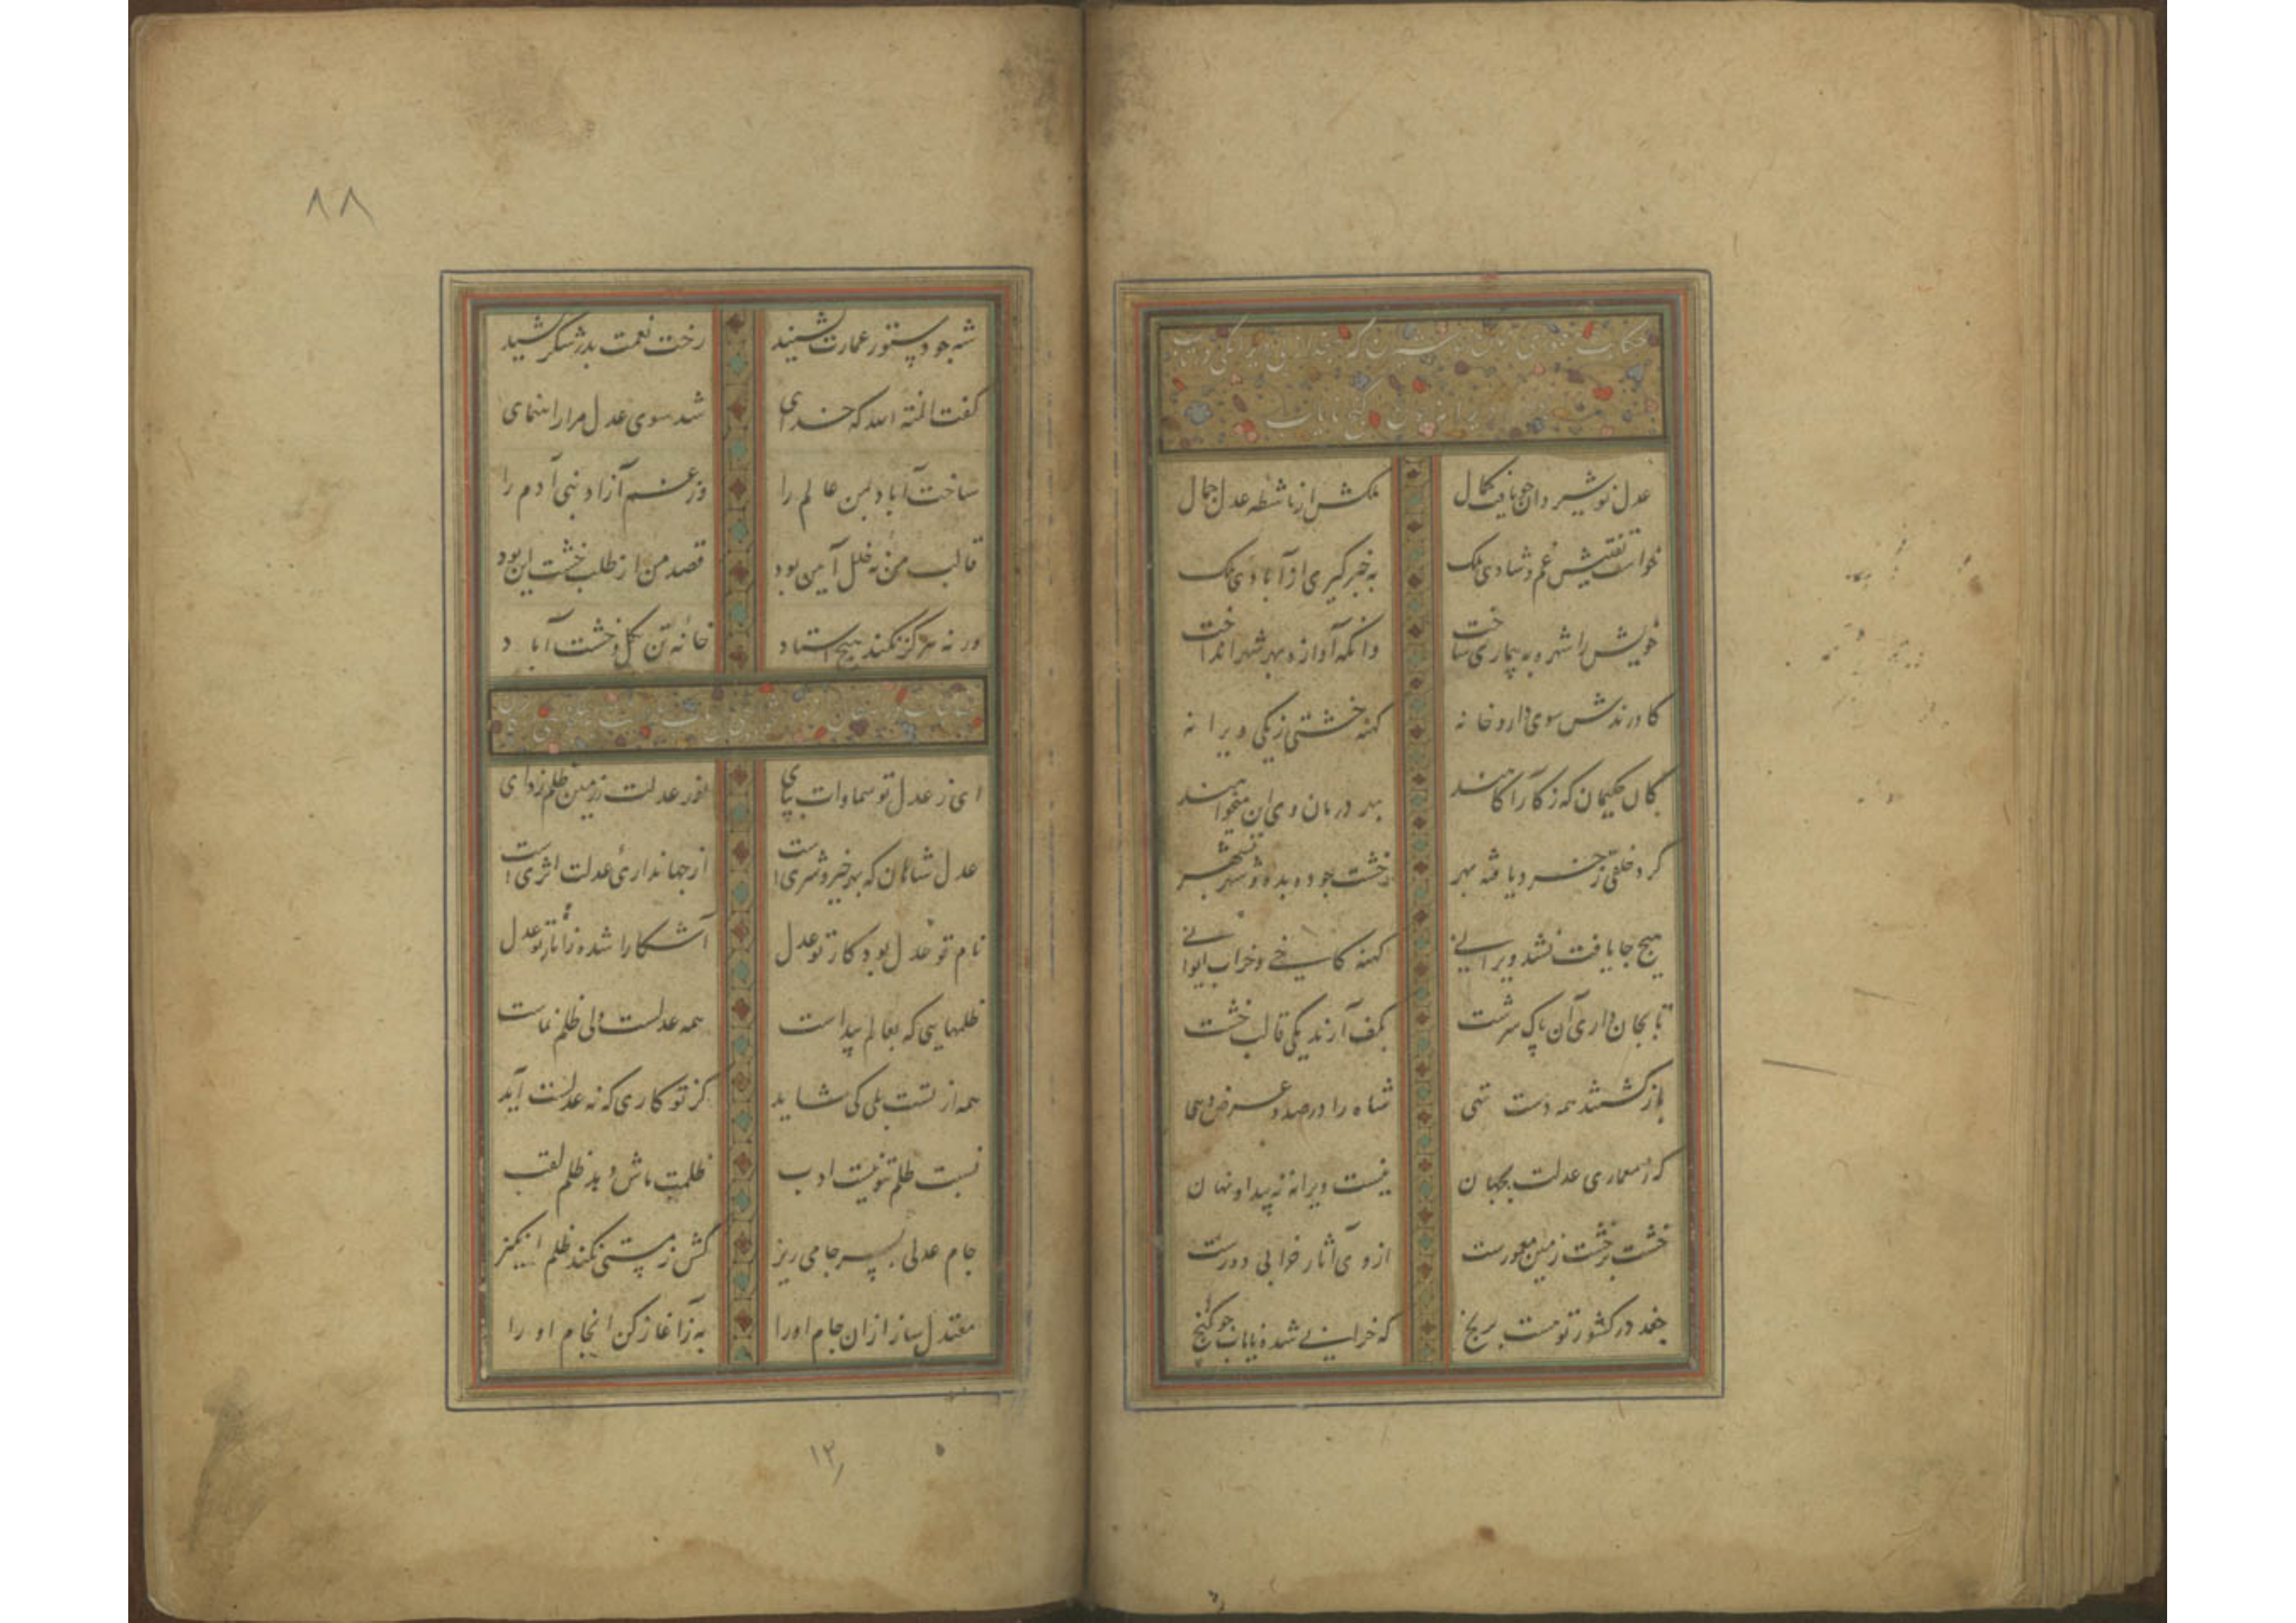 عدل نوشیروان چو یافت کمال
ملکش از ماشطه عدل جمال
خواست تفتیش غم و شادی ملک
به خبرگیری از آبادی ملک
خویش را شهره به بیماری ساخت
وانگه آوازه بهر شهر انداخت
کاورندش سوی دارو خانه
کهنه خشتی ز یکی ویرانه
کان حکیمان که ز کار آگاهند
بهر درمان وی این میخواهند
گرد خلقی ز خرد یافته بهر
خشت جو ده بده و شهر بشهر
هیچ جا یافت نشد ویرانی
کهنه کاخی و خراب ایوانی
تا بجان داری آن پاک سرشت
بکف آرند یکی قالب خشت
بازگشتند همه دست تهی
شاه را در صدد عرض دهی
که ز معماری عدلت بجهان
نیست ویرانه نه پیدا و نهان
خشت بر خشت زمین معمورست
از وی آثار خرابی دورست
جغد در کشور تو هست برنج
که خرابی شده نایاب چو گنج
۸۸
شه چو دستور عمارت بشنید
رخت نعمت بدر شکر کشید
گفت المنة الله که خدای
شد سوی عدل مرا راهنمای
ساخت آباد بمن عالم را
وز غم آزاد بنی آدم را
قالب من نه خلل آیین بود
قصد من از طلب خشت این بود
ورنه هرگز نکند هیچ استاد
خانه تن بگل و خشت آباد
ای ز عدل تو سماوات بپای
نور عدلت ز زمین ظلم زدای
عدل شاهان که بهر خیر و شری است
از جهانداری عدلت اثری است
نام تو عدل بود کار تو عدل
آشکارا شده ز آثار تو عدل
ظلمهایی که بعالم پیداست
همه عدلست ولی ظلم نماست
همه از تست بلی کی شاید
کز تو کاری که نه عدلست آید
نسبت ظلم بتو نیست ادب
ظلمت ماش دهد ظلم لقب
جام عدلی بسر جامی ریز
کش ز مستی نکند ظلم انگیز
معتدل ساز ازان جام او را
به ز آغاز کن انجام او را
۱۲